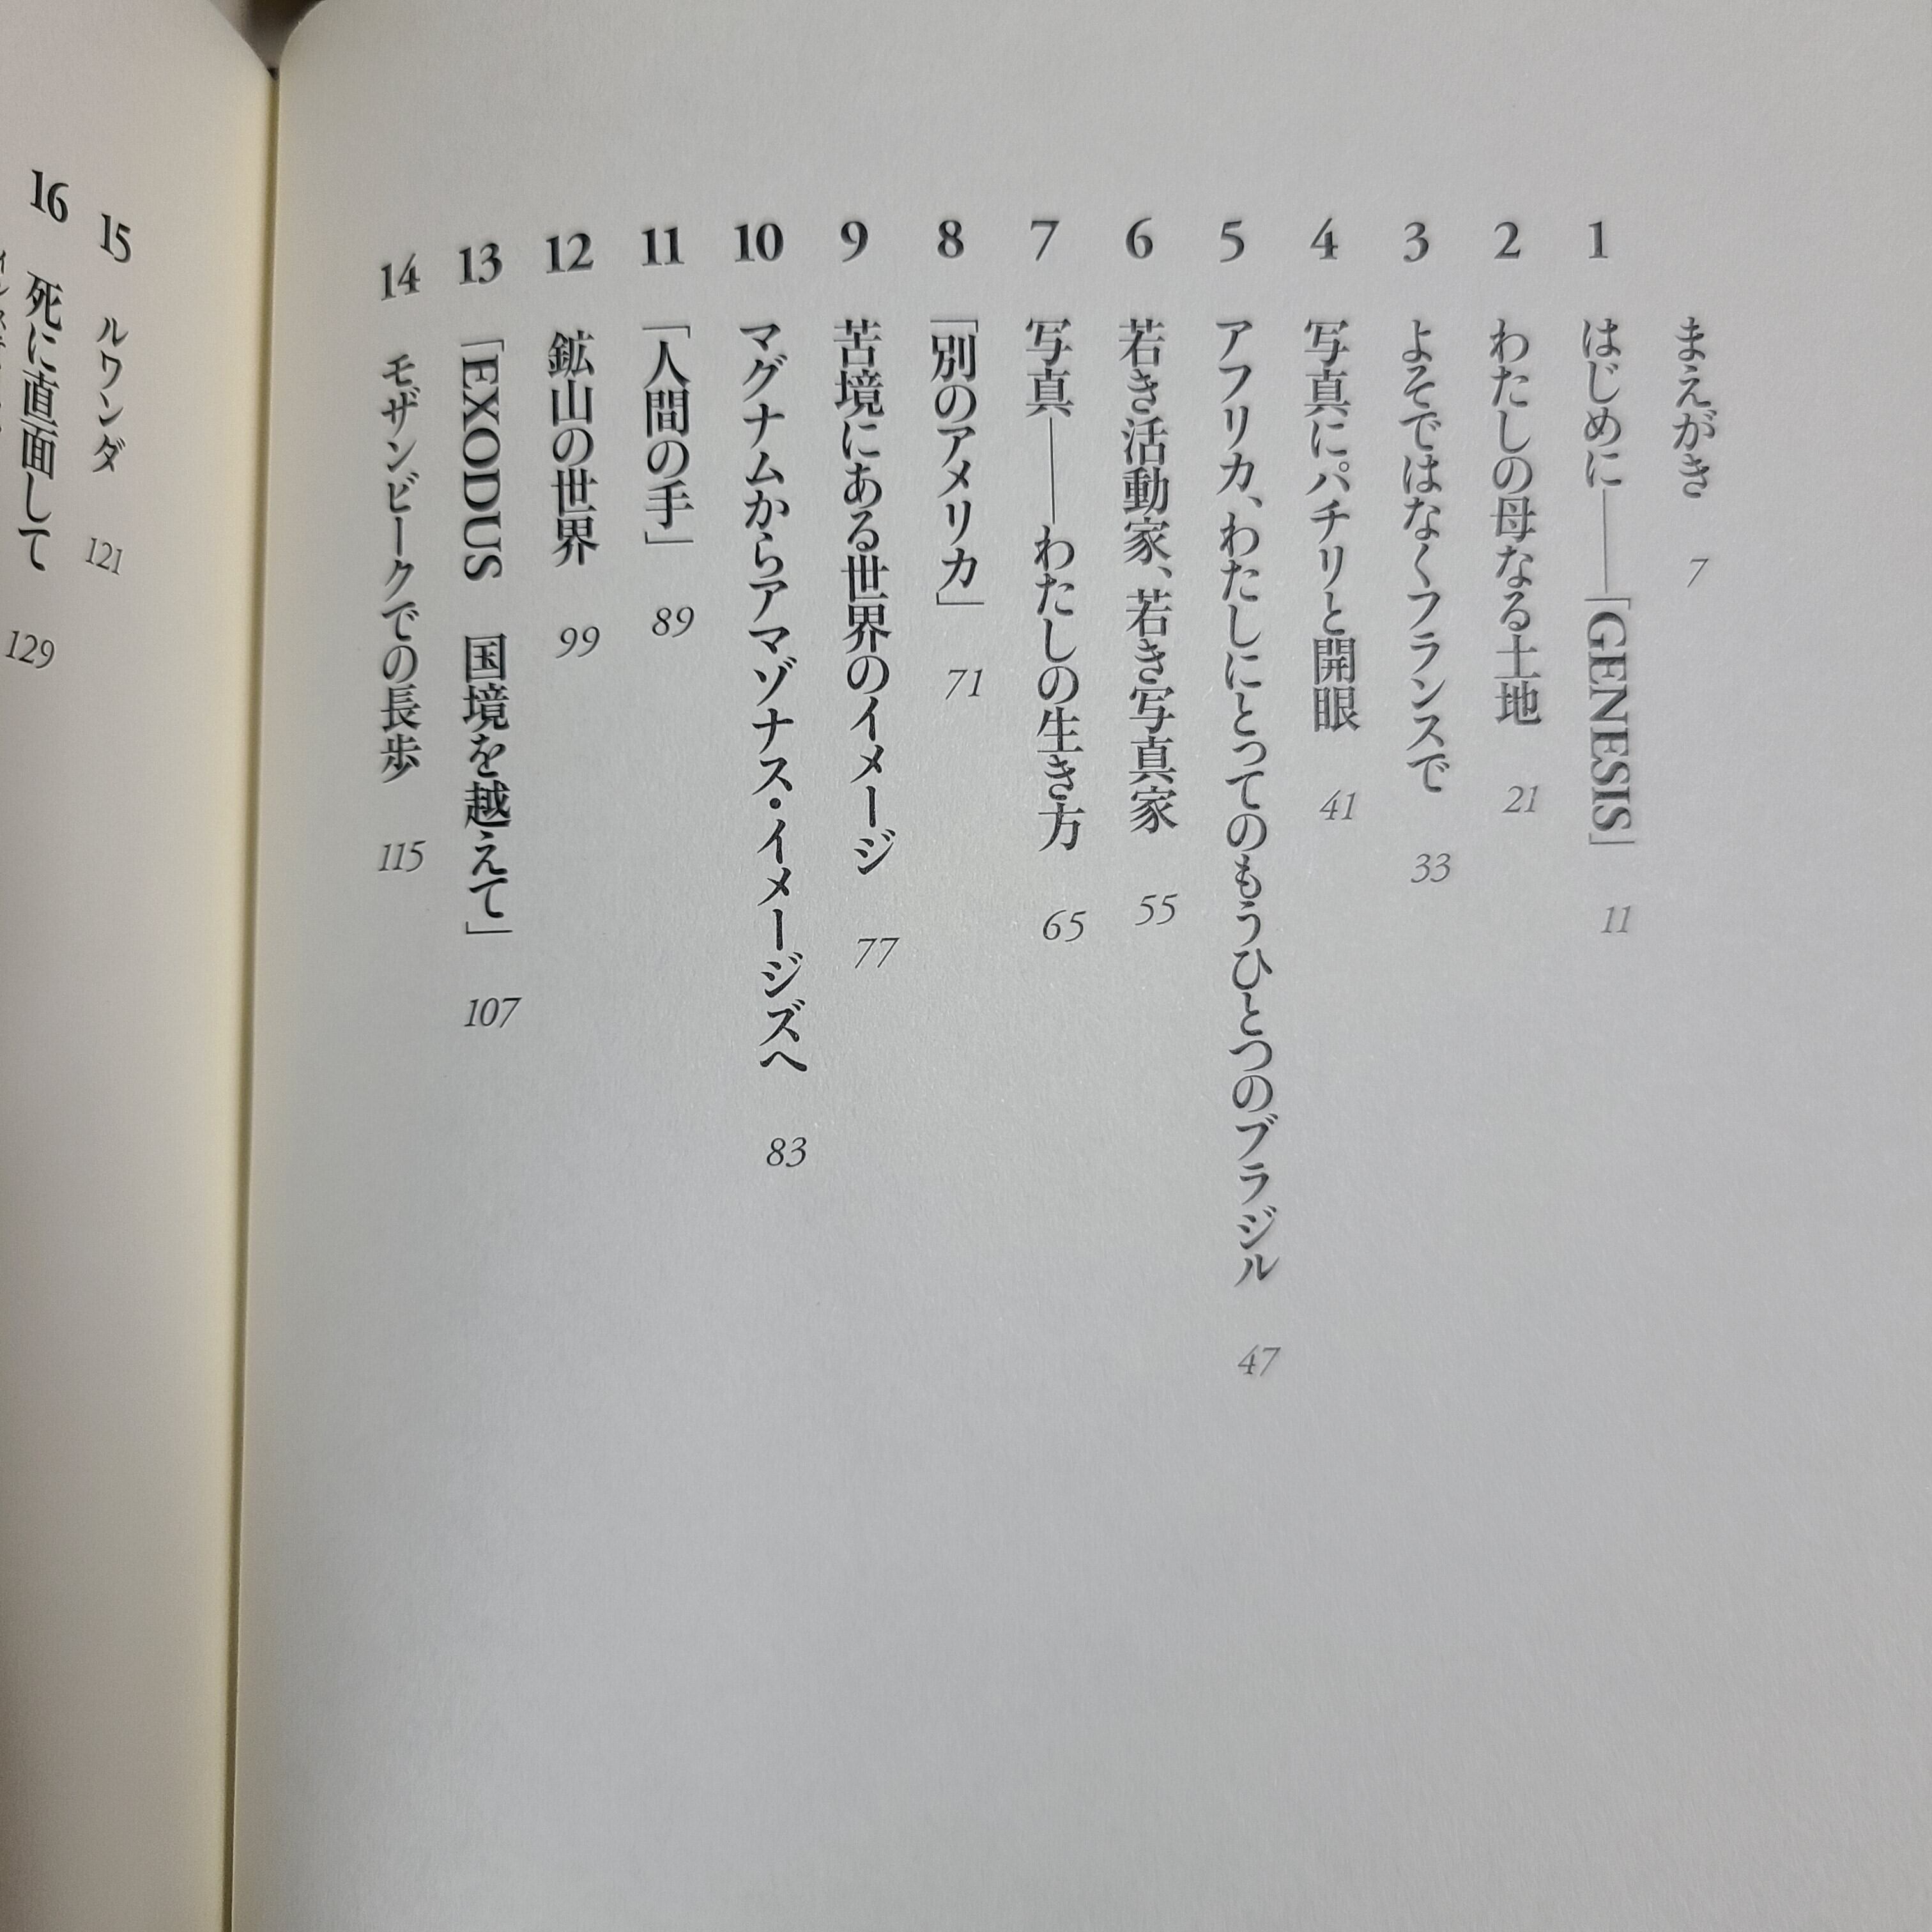 まえがき 7
1 はじめに――「GENESIS」 11
2 わたしの母なる土地 21
3 よそではなくフランスで 33
4 写真にパチリと開眼 41
5 アフリカ、わたしにとってのもうひとつのブラジル 47
6 若き活動家、若き写真家 55
7 写真――わたしの生き方 65
8 「別のアメリカ」 71
9 苦境にある世界のイメージ 77
10 マグナムからアマゾナス・イメージズへ 83
11 「人間の手」 89
12 鉱山の世界 99
13 「EXODUS 国境を越えて」 107
14 モザンビークでの長歩 115
15 ルワンダ 121
16 死に直面して 129